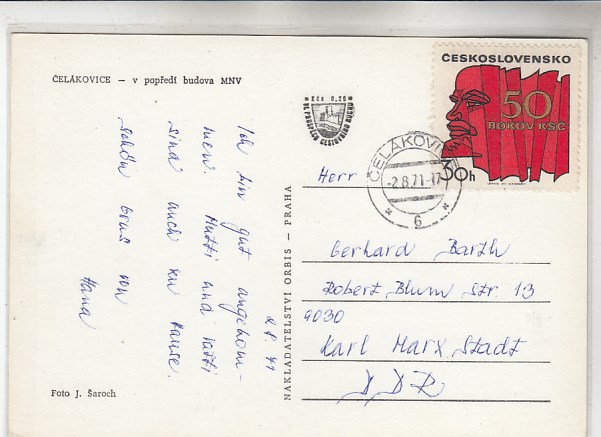 ČELÁKOVICE — v popředí budova MNV
Kčs 0,20
VE PROSPĚCH CESTOVNÍHO RUCHU
ČESKOSLOVENSKO
50
ROKOV KSČ
30h
ČELÁKOVICE
-2.8.71-17
* 6 *
Ich bin gut angekom-
men. Mutti und Vatti
sind auch zu Hause.
schön Grus von
Hana
2.8.71
NAKLADATELSTVÍ ORBIS — PRAHA
Herr
Gerhard Barth
Robert Blum Str. 13
9030
Karl Marx Stadt
DDR
Foto J. Šaroch